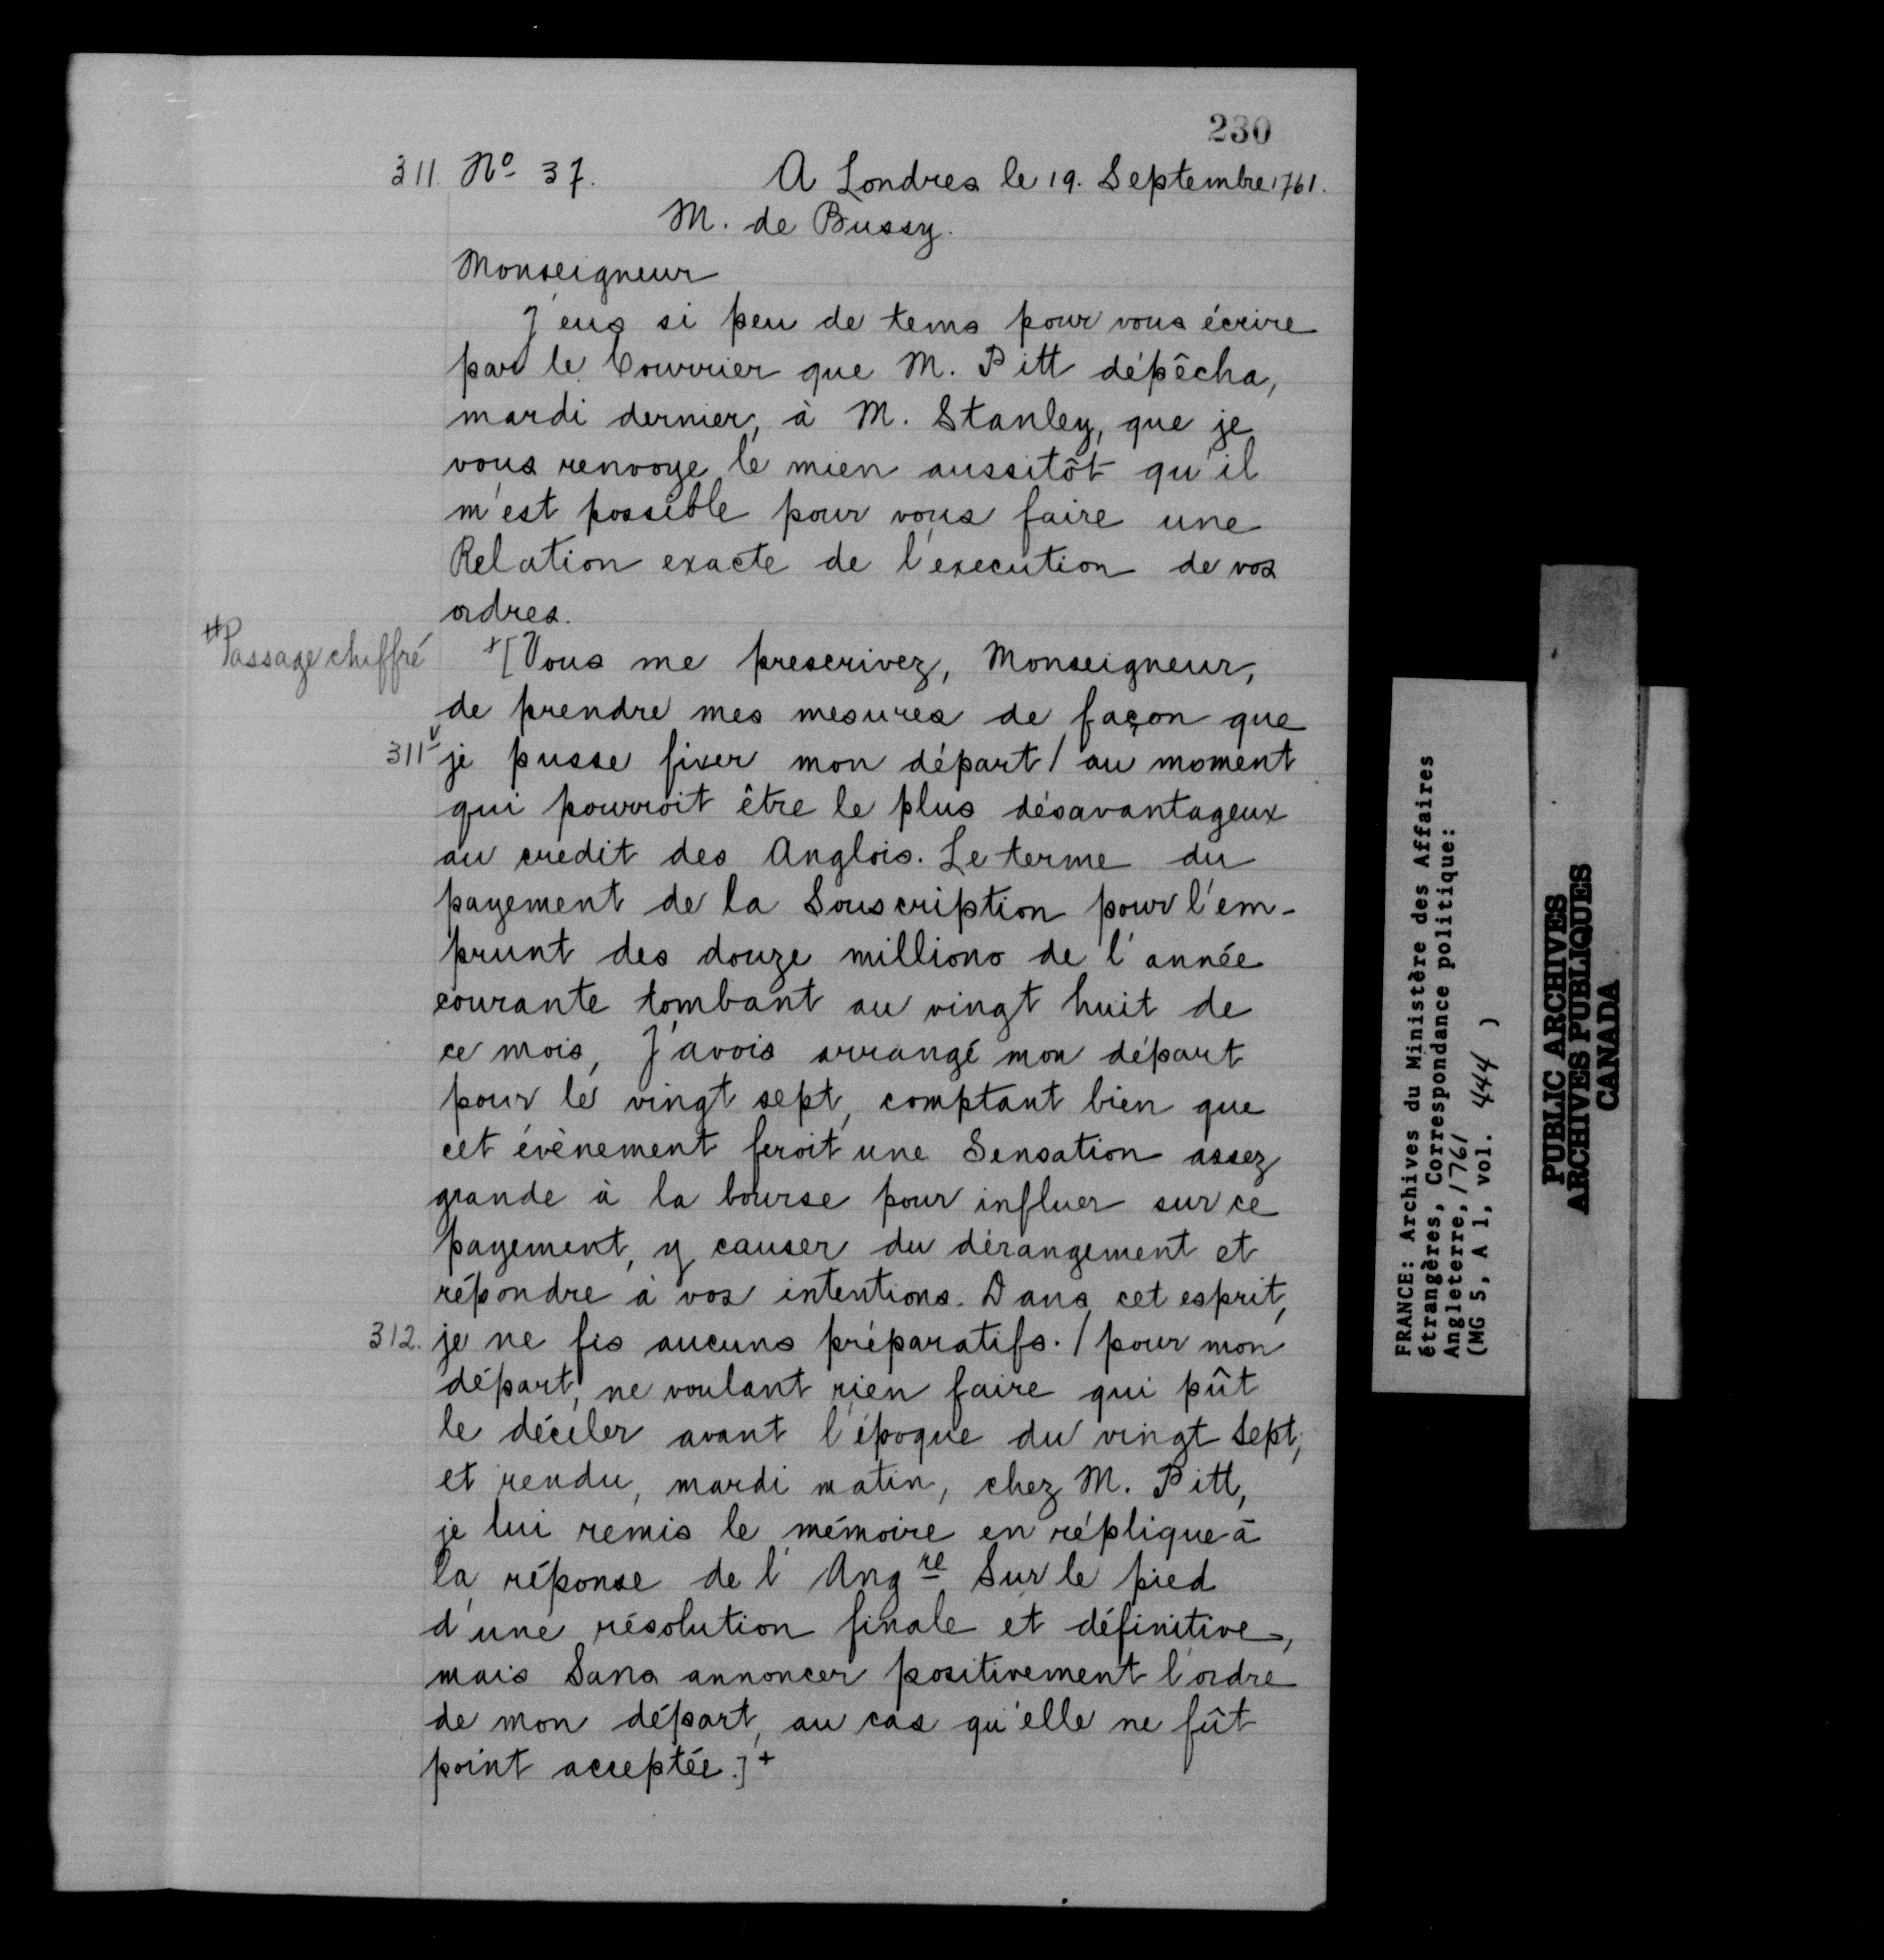 230
311. Nº 37. A Londres le 19. Septembre 1761.
M. de Bussy.
Monseigneur
J'eus si peu de tems pour vous écrire
par le Courrier que M. Pitt dépêcha,
mardi dernier, à M. Stanley, que je
vous renvoye le mien aussitôt qu'il
m'est possible pour vous faire une
Relation exacte de l'execution de vos
ordres.
#Passage chiffré +[Vous me prescrivez, Monseigneur,
de prendre mes mesures de façon que
311v je pusse fixer mon départ / au moment
qui pourroit être le plus désavantageux
au credit des Anglois. Le terme du
payement de la Souscription pour l'em-
prunt des douze millions de l'année
courante tombant au vingt huit de
ce mois, J'avois arrangé mon départ
pour le vingt sept, comptant bien que
cet évènement feroit une Sensation assez
grande à la bourse pour influer sur ce
payement, y causer du dérangement et
répondre à vos intentions. Dans cet esprit,
312. je ne fis aucuns préparatifs. / pour mon
départ, ne voulant rien faire qui pût
le déceler avant l'époque du vingt Sept;
et rendu, mardi matin, chez M. Pitt,
je lui remis le mémoire en réplique à
la réponse de l'Angre Sur le pied
d'une résolution finale et définitive,
mais Sans annoncer positivement l'ordre
de mon départ, au cas qu'elle ne fût
point acceptée.]+
FRANCE: Archives du Ministère des Affaires
étrangères, Correspondance politique:
Angleterre, 1761
(MG 5, A 1, vol. 444 )
PUBLIC ARCHIVES
ARCHIVES PUBLIQUES
CANADA